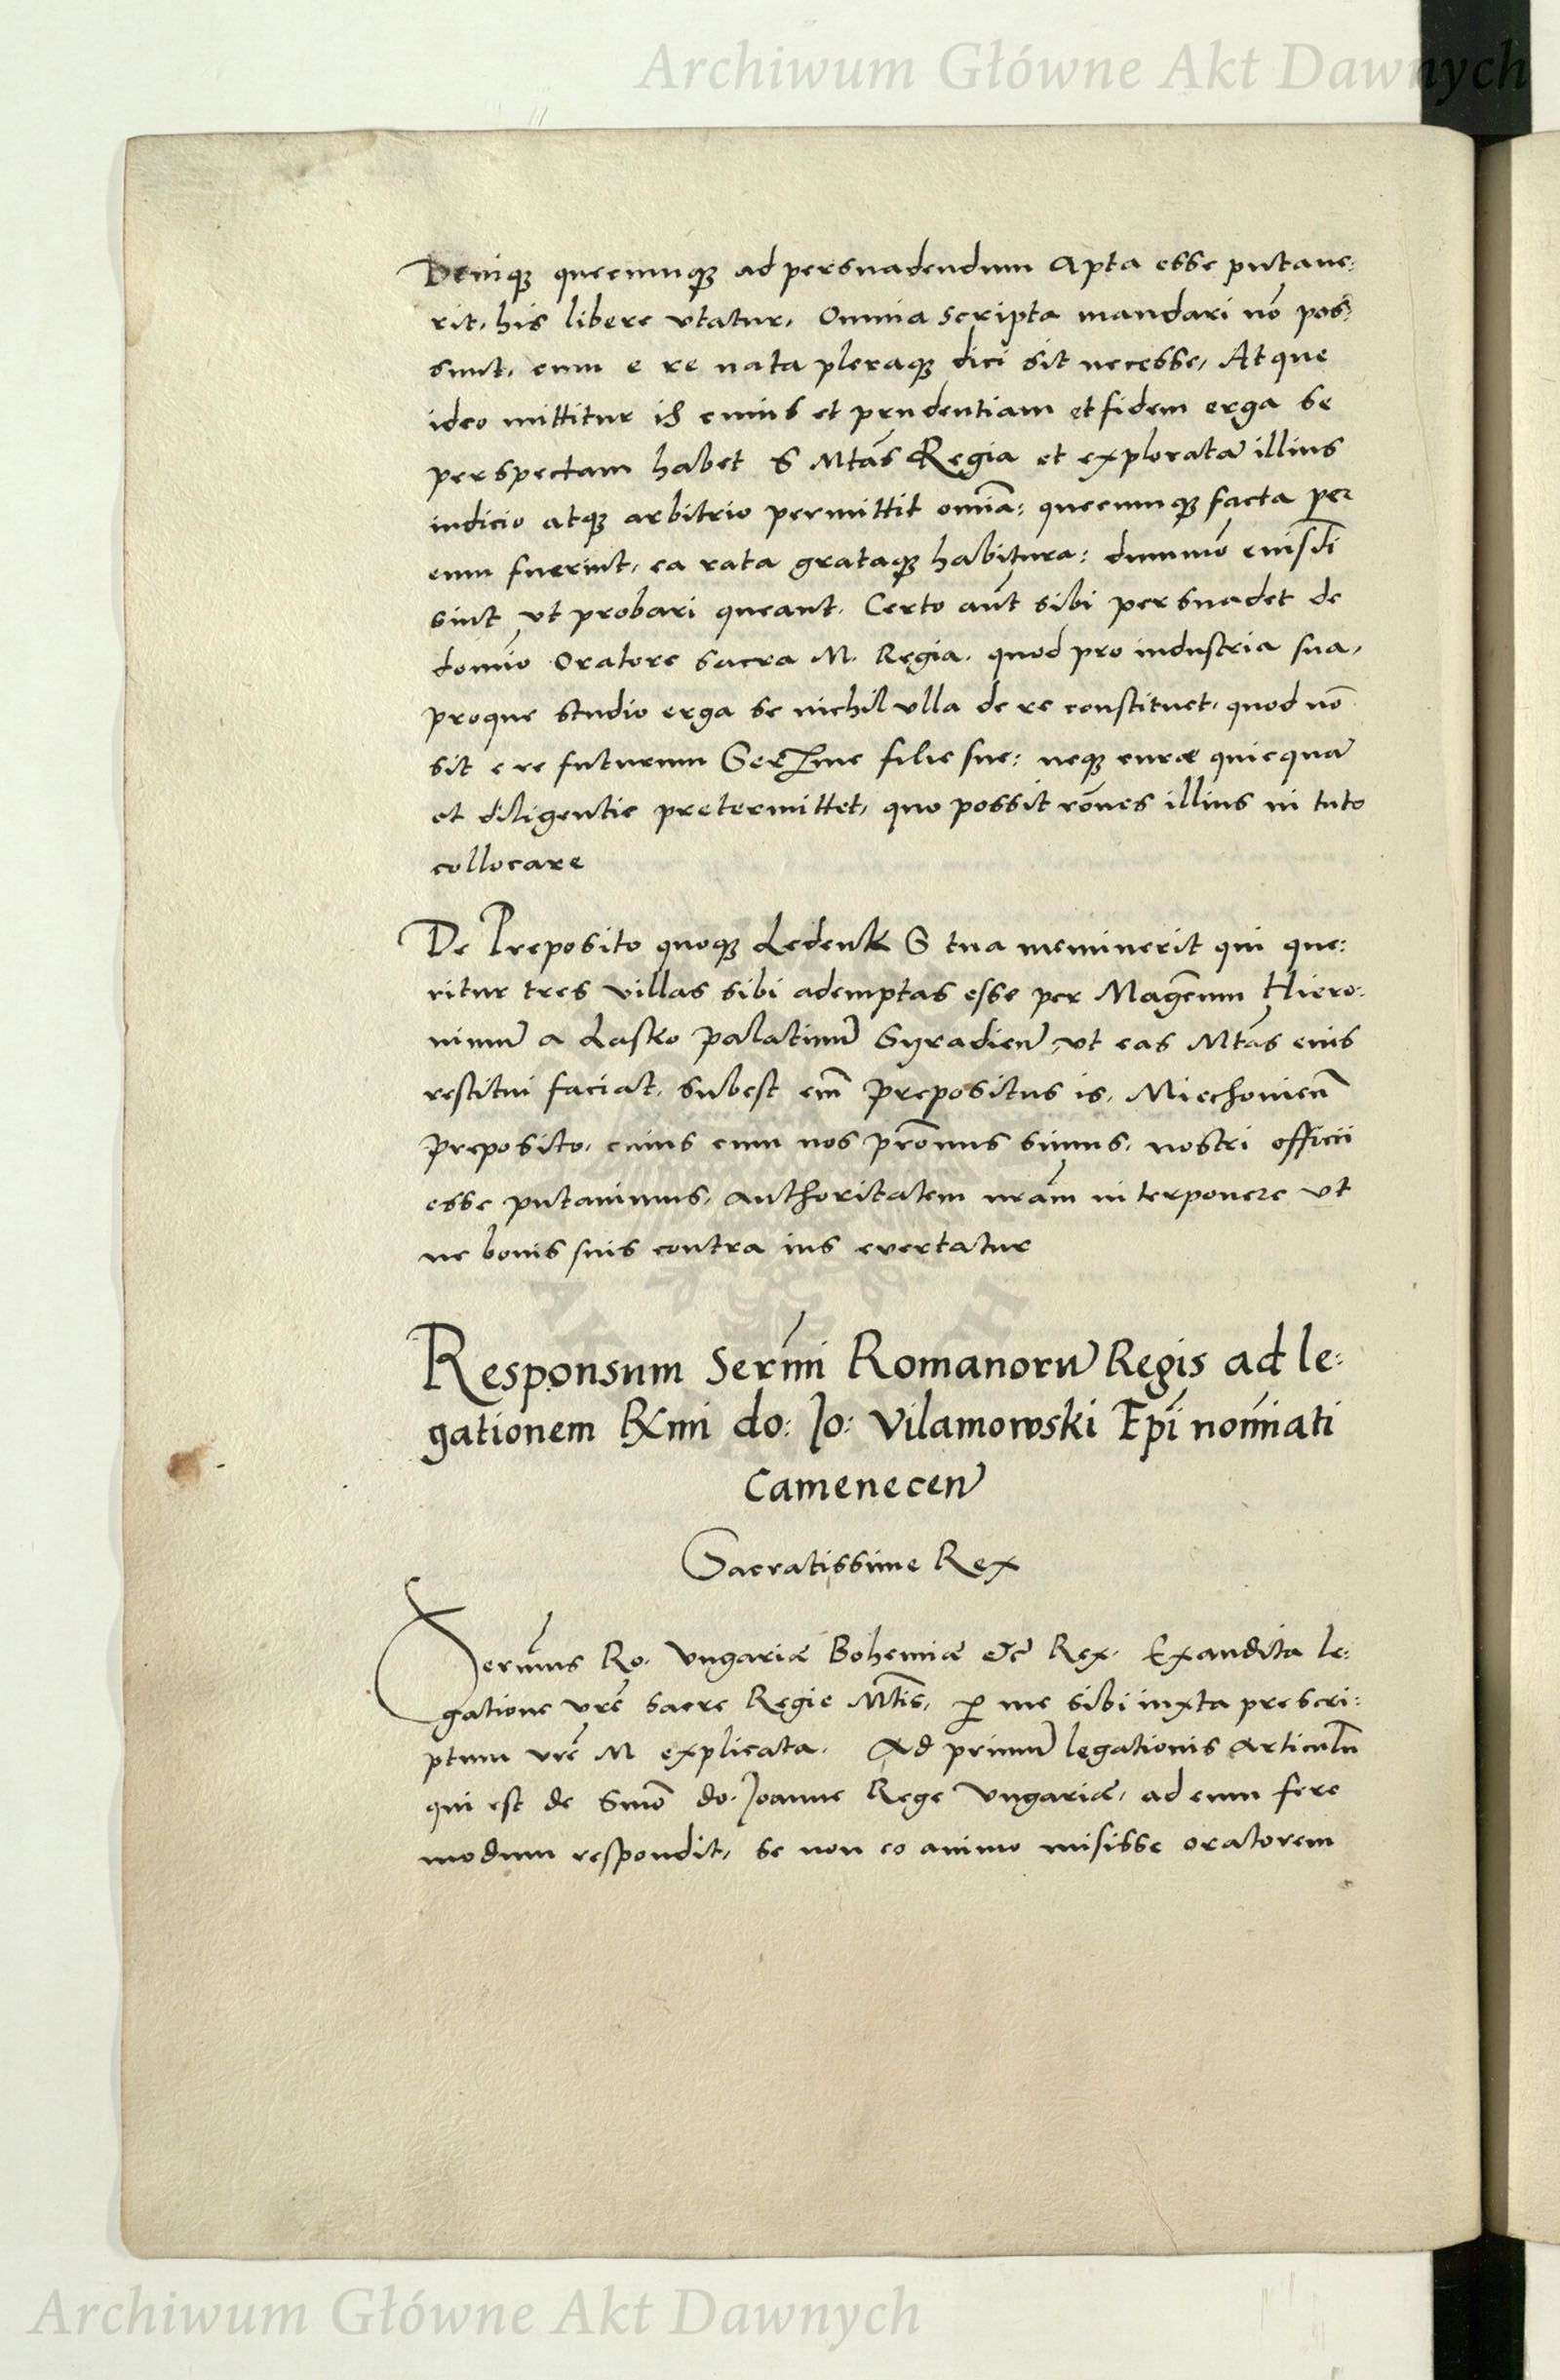 Archiwum Główne Akt Dawnych
Deniqꝫ quecunqꝫ ad persuadendum apta esse putaue:
rit, his libere vtatur, Omnia scripta mandari nō pos:
sunt, cum e re nata pleraqꝫ dici sit necesse, Atque
ideo mittitur is cuius et prudentiam et fidem erga se
perspectam habet S Mtas Regia et exploratā illius
iudicio atqꝫ arbitrio permittit omīa: quecunqꝫ facta per
eum fuerint, ea rata grataqꝫ habitura: dummō eiusdī
sint vt probari queant. Certo aūt sibi persuadet de
domīo Oratore sacra M. Regia. quod pro industria sua,
proque studio erga se nichil ulla de re constituet, quod nō
sit e re futurum Serᵐᵉ filie sue: neqꝫ curæ quicquā
et diligentie pretermittet, quo possit rōnes illius in tuto
collocare
De Preposito quoqꝫ Ledenk S tua meminerit qui que:
ritur tres villas sibi ademptas esse per Magcum Hiero:
nimū a Lasko palatinū Syradien̄ vt eas Mtas eius
restitui faciat. subest em̄ prepositus is, Miechouien̄
preposito, cuius cum nos prōnus simus, nostri officii
esse putauimus, authoritatem nrām interponere vt
ne bonis suis contra ius euertatur
Responsum Sermi Romanorū Regis ad le:
gationem Rxmi do: Jo: Vilamowski Epī nomiati
Camenecen̄
Sacratissime Rex
Serm̄us Ro. Vngariæ Bohemiæ etc̄ Rex. Exaudita le:
gatione vrē sacre Regie Mtis, ꝑ me sibi iuxta prescri:
ptum vrē M explicata. Ad primū legationis articulū
qui est de Smō do. Joanne Rege Vngariæ, ad eum fere
modum respondit, se non eo animo misisse oratorem
Archiwum Główne Akt Dawnych